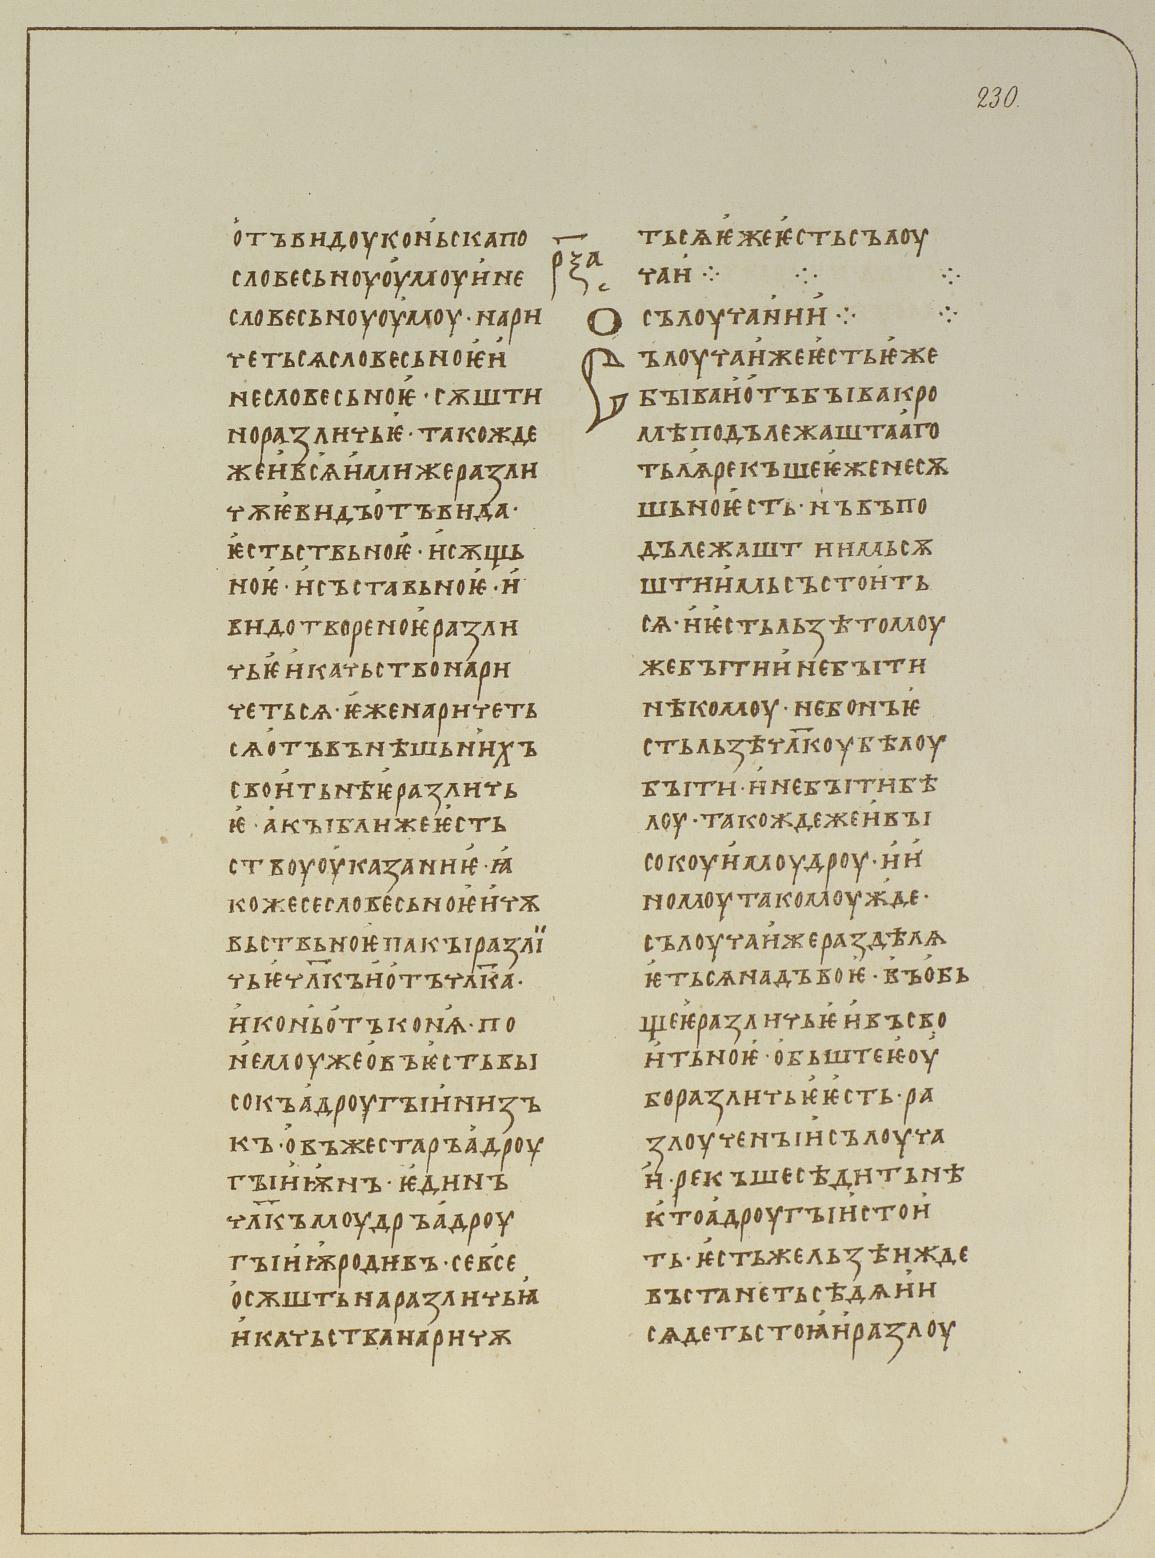 230.
отъвидоуконьскапо
словесьноуоумоуине
словесьноуоумоу·нари
четьсѧсловесьноѥи
несловесьноѥ·сѫшти
норазличьѥ·такожде
жеивьсѧимижеразли
чѫѥвидъотъвида·
ѥстьствьноѥ·исѫщь
ноѥ·исъставьноѥ·и
видотвореноѥразли
чьѥикачьствонари
четьсѧ·ѥженаричеть
сѧотъвънѣшьниихъ
своитьнѣѥразличь
ѥ·акꙑближеѥсть
ствоуоуказаниѥ·ꙗ
кожесесловесьноѥичѫ
вьствьноѥпакꙑразлї
чьѥчл҃къиотъчл҃ка·
иконьотъконꙗ·по
немоужеовъѥстьвы
сокъадроугꙑинизъ
къ·овъжестаръадроу
гꙑиѭнъ·ѥдинъ
чл҃къмоудръадроу
гꙑиѭродивъ·севсе
осѫштьнаразличьꙗ
икачьстванаричѫ
тьсѧѥжеѥстьсълоу
чаи ⁘ ⁘ ⁘
р҃за
о сълоучаинии ⁘ ⁘
Сълоучаижеѥстьѥже
бꙑваиотъбꙑвакро
мѣподълежаштааго
тьлѧрекъшеѥженесѫ
шьноѥсть·нъвъпо
дълежашт иимьсѫ
штиимьсъстоить
сѧ·иѥстьльзѣтомоу
жебꙑтиинебꙑти
нѣкомоу·небонъѥ
стьльзѣчл҃коубѣлоу
бꙑти·инебꙑтибѣ
лоу·такождежеивꙑ
сокоуимоудроу·ии
номоутакомоужде·
сълоучаижераздѣлꙗ
ѥтьсѧнадъвоѥ·въобь
щеѥразличьѥивъсво
итьноѥ·обьштеѥоу
боразличьѥѥсть·ра
злоученꙑисълоуча
и·рекъшесѣдитьнѣ
ктоадроугꙑистои
ть·ѥстьжельзѣижде
въстанетьсѣдѧии
сѧдетьстоꙗиразлоу